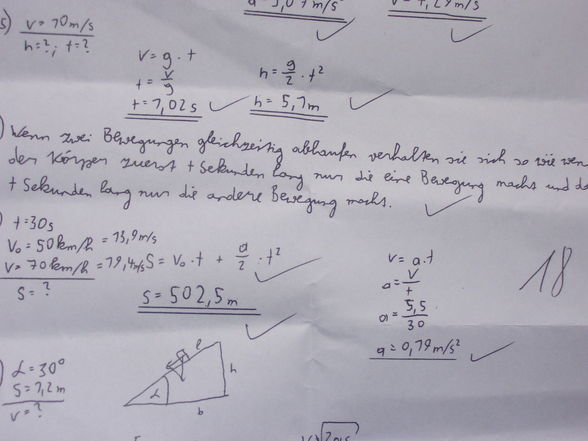 5) v = 10 m/s
h = ?, t = ?
v = g · t
t = v/g
t = 1,02 s
h = g/2 · t²
h = 5,1 m
) Wenn zwei Bewegungen gleichzeitig ablaufen verhalten sie sich so wie wenn
der Körper zuerst t Sekunden lang nur die eine Bewegung machs und da
t Sekunden lang nur die andere Bewegung machs.
) t = 30s
v₀ = 50 km/h = 13,9 m/s
v = 70 km/h = 19,4 m/s
s = ?
s = v₀ · t + a/2 · t²
s = 502,5 m
v = a · t
a = v/t
a = 5,5/30
a = 0,19 m/s²
18
) α = 30°
s = 7,2 m
v = ?
α
l
h
b